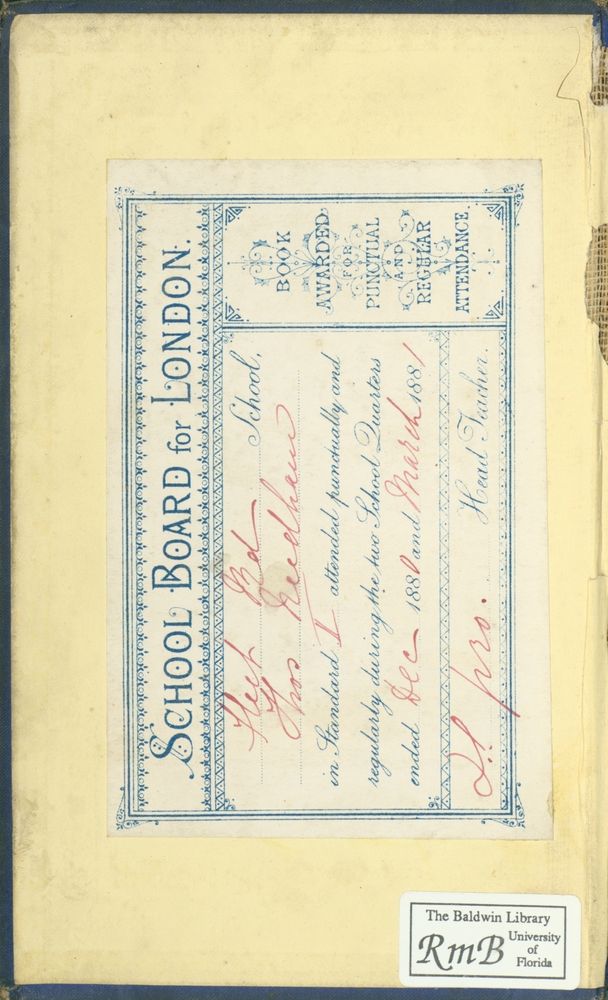 SCHOOL BOARD for LONDON.
Fleet Rd School,
Thos Needham
in Standard I attended punctually and
regularly during the two School Quarters
ended Dec 1880 and March 1881
Head Teacher.
BOOK
AWARDED
FOR
PUNCTUAL
AND
REGULAR
ATTENDANCE.
The Baldwin Library
RmB
University
of
Florida